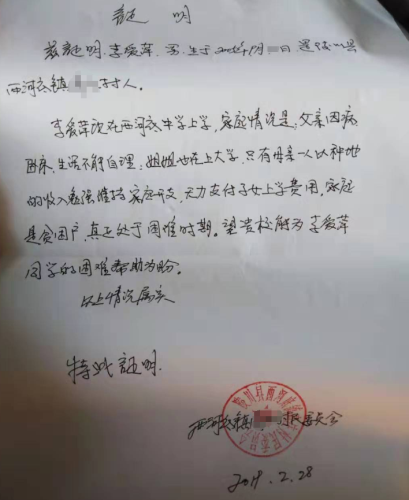 证明
兹证明,李爱萍,男,生于200 年1月 日 逻
西河 镇 村人
李爱萍现在西河 中学上学,家庭情况是:父亲因病
卧床,生活不能自理;姐姐也在上大学,只有母亲一人以种地
的收入勉强维持家庭开支,无力支付子女上学费用,家庭
是贫困户,真正处于困难时期。望贵校能为李爱萍
同学的困难帮助为盼。
以上情况属实
特此证明.
西河 村民委员会
2019.2.28